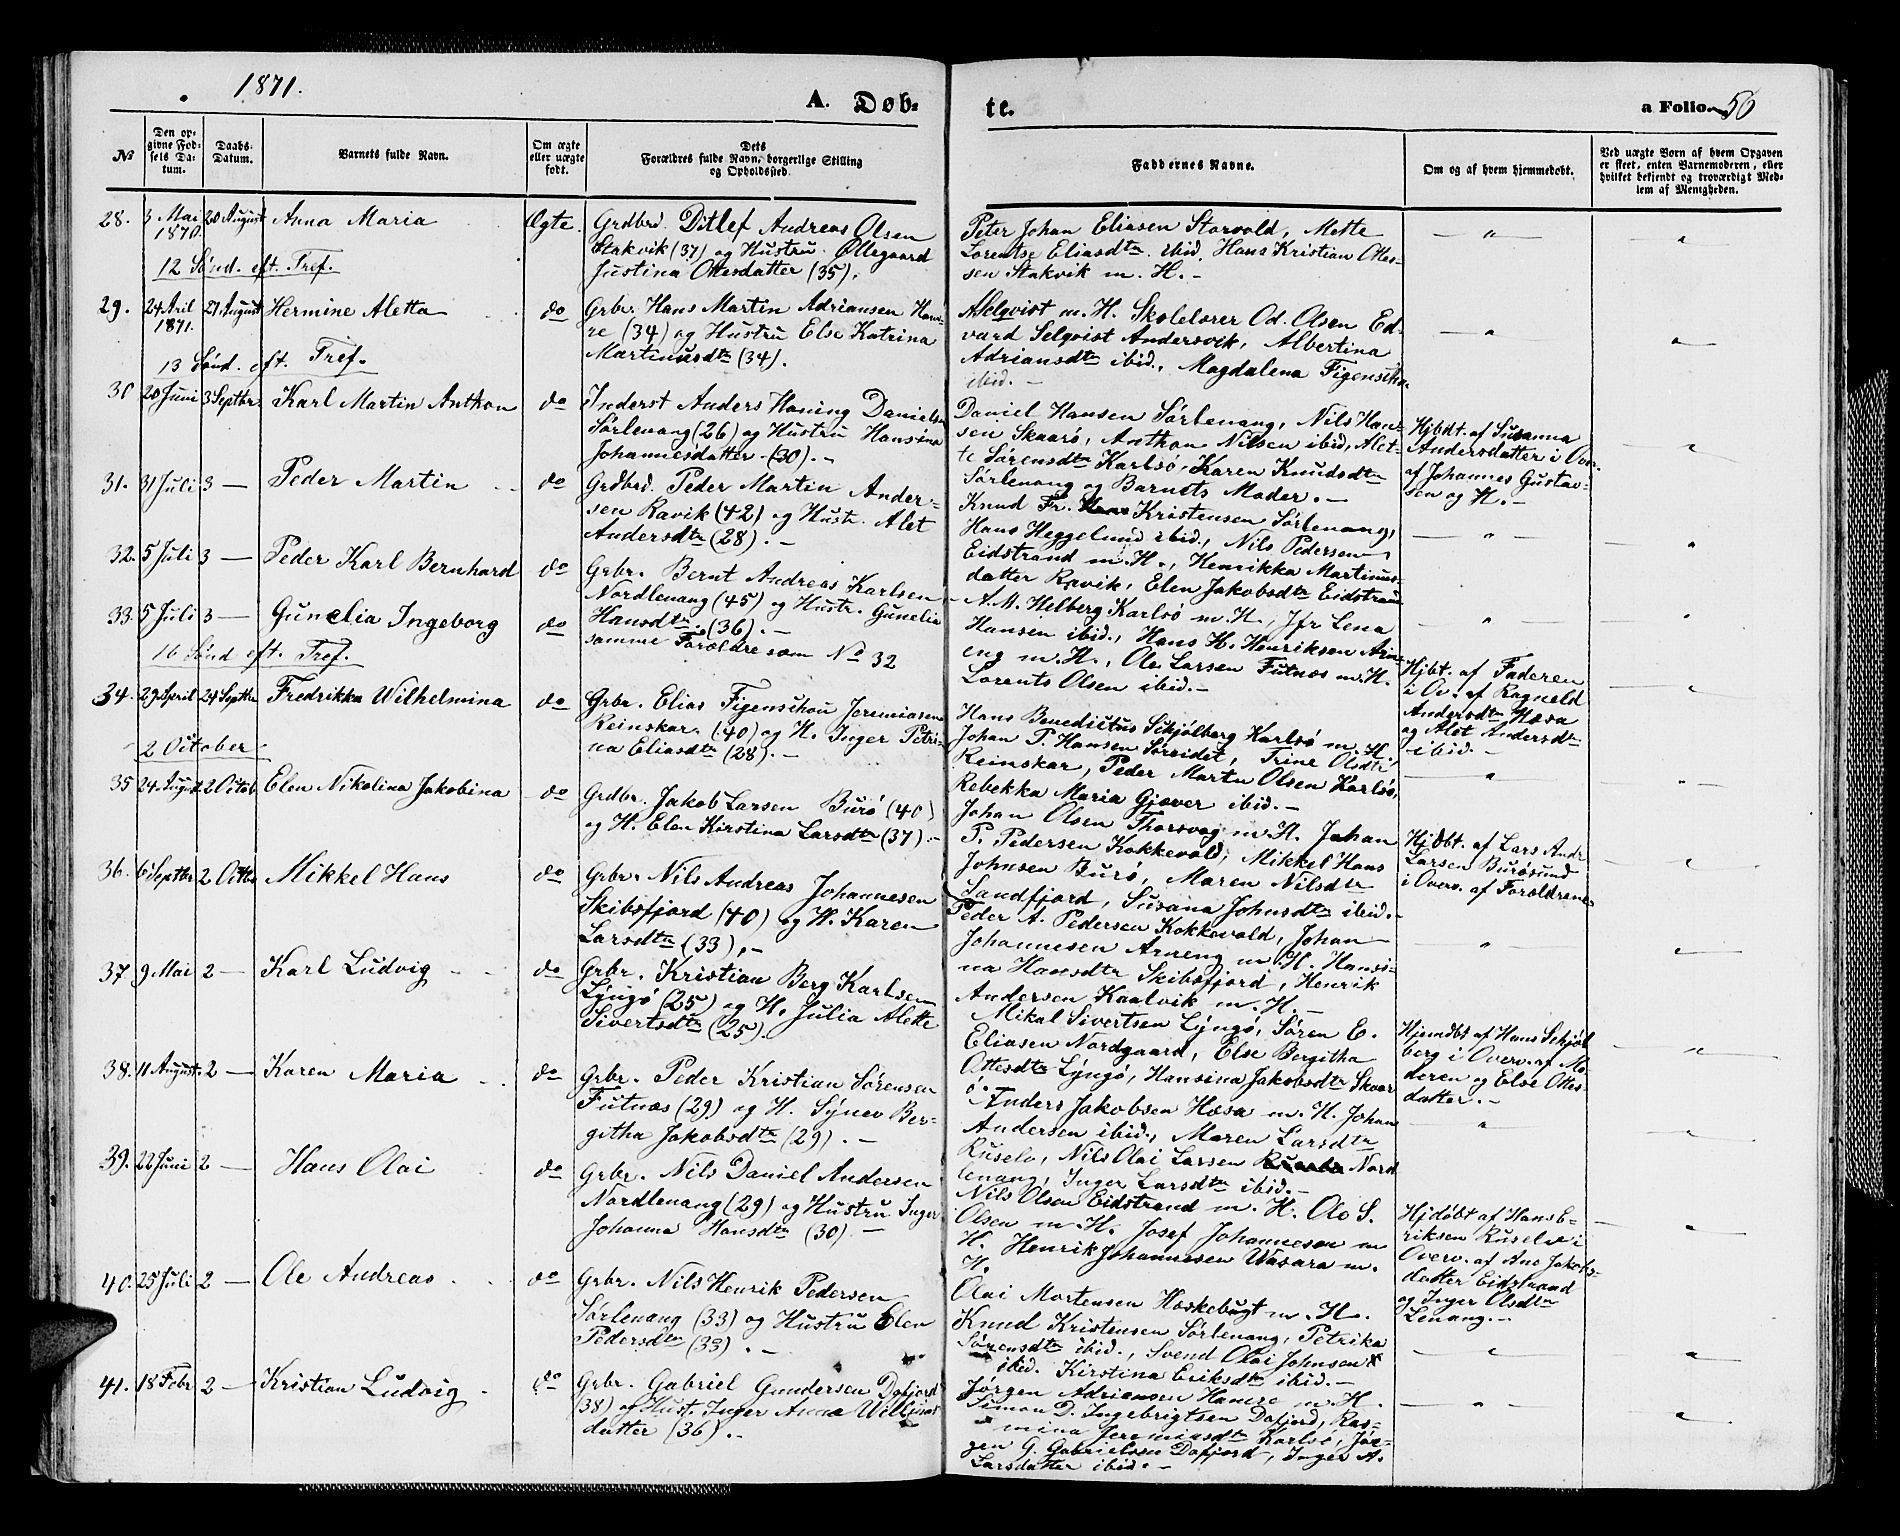 1871.
A. Døb-
te.
a Folio. 50
№
Den op-
givne Fød-
sels Da-
tum.
Daabs-
Datum.
Barnets fulde Navn.
Om ægte
eller uægte
født.
Dets
Forældres fulde Navn, borgerlige Stilling
og Opholdssted.
Faddernes Navne.
Om og af hvem hjemmedøbt.
Ved uægte Børn af hvem Opgaven
er skeet, enten Barnemoderen, eller
hvilket bekjendt og troværdigt Med-
lem af Menigheden.
28. 3 Mai 1870. 20 August Anna Maria Ægte.
Grdbrd. Ditlef Andreas Olsen
Stakvik (37) og Hustru Øllegaard
Justina Ottesdatter (35).
Peter Johan Eliasen Storvold, Mette
Lorentse Eliasdtr ibid, Hans Kristian Ottes-
sen Stakvik m. H. -
12 Sønd. eft. Tref.
29. 24 Aril 1871. 27 August Hermine Aletta do
Grbr. Hans Martin Adriansen Ham-
re (34) og Hustru Else Katrina
Martinusdtr (34).
A Selqvist m. H. Skolelærer Od. Olsen Ed-
vard Selqvist Andersvik, Albertina
Adriansdtr ibid., Magdalena Figenschau
ibid. -
13 Sønd. eft. Tref.
30 20 Juni 3 Septbr. Karl Martin Anthon do
Inderst Anders Haning Danielsen
Sørlenang (26) og Hustru Hansina
Johannesdatter (30). -
Daniel Hansen Sørlenang, Nils Han-
sen Skaarø, Anthon Nilsen ibid, Alet-
te Sørensdtr Karlsø, Karen Knudsdtr
Sørlenang og Barnets Moder. -
Hjbdt. af Susanna
Andersdatter i Over.
af Johannes Gustav-
sen og H. -
31. 31 Juli 3 — Peder Martin do
Grdbrd. Peder Martin Ander-
sen Ravik (42) og Hustr. Alet
Andersdtr (28). -
Knud Fr. Kristensen Sørlenang,
Hans Heggelund ibid., Nils Pedersen
Eidstrand m. H., Henrikka Martinus-
datter Ravik, Elen Jakobsdtr Eidstrand
32. 5 Juli 3 — Peder Karl Bernhard do
Grbr. Bernt Andreas Karlsen
Nordlenang (45) og Hustr. Gunelia
Hansdtr. (36). -
A. M. Helberg Karlsø m. H., Jfr Lena
Hansen ibid., Hans H. Henriksen Arn-
eng m. H., Ole Larsen Futnæs m. H.
Lorents Olsen ibid. -
33. 5 Juli 3 — Gunelia Ingeborg do
samme Forældre som No 32
16 Sønd eft. Tref.
34. 29 April 24 Septbr Fredrikka Wilhelmina do
Grbr. Elias Figenschou Jeremiasen
Reinskar. (40) og H. Inger Petri-
na Eliasdtr (28). -
Hans Benedictus Schjølberg Karlsø m. H.
Johan P. Hansen Sørreidet, Trine Olsdtr
Reinskar, Peder Martin Olsen Karlsø,
Rebekka Maria Gjæver ibid. -
Hjbt. af Faderen
i Ov. af Ragneld
Andersdtr Hæsa
og Alet Andersdtr
ibid. -
2 October
35 24 August 2 Octob Elen Nikolina Jakobina do
Grdbr. Jakob Larsen Burø (40)
og H. Elen Kirstina Larsdtr (37). -
Johan Olsen Thorsvag m. H. Johan
P. Pedersen Kokkevold, Mikkel Hans
Johnsen Burø, Maren Nilsdtr
Sandfjord, Susana Johnsdtr ibid. -
Hjdbt. af Lars Andr
Larsen Burøsund
i Overv. af Forældrene
36. 6 Septbr 2 Octbr Mikkel Hans do
Grbr. Nils Andreas Johannesen
Skibsfjord (40) og H. Karen
Larsdtr (33). -
Peder A. Pedersen Kokkevold, Johan
Johannesen Arneng m. H. Hansi-
na Hansdtr Skibsfjord, Henrik
Andersen Kaalvik m. H. -
37 9 Mai 2 — Karl Ludvig do
Grbr. Kristian Berg Karlsen
Lyngø (25) og H. Julia Alette
Sivertsdtr (25).
Mikal Sivertsen Lyngø, Søren E.
Eliasen Nordgaard, Else Bergitha
Ottesdtr Lyngø, Hansina Jakobsdtr Skaar
ø.
Hjemdbt af Hans Schjøl
berg i Overv. af Mo
deren og Else Ottes-
datter. -
38. 11 August. 2 — Karen Maria do
Grbr. Peder Kristian Sørensen
Futnæs (29) og H. Synev Ber-
githa Jakobsdtr (29). -
Anders Jakobsen Hæsa m. H. Johan
Andersen ibid., Maren Larsdtr
Ruselv, Nils Olai Larsen Nord
lenang, Inger Larsdtr ibid. -
39. 22 Juni 2 — Hans Olai do
Grbr. Nils Daniel Andersen
Nordlenang (29) og Hustru Inger
Johanna Hansdtr (30) -
Nils Olsen Eidstrand m. H. Ole S.
Olsen m. H. Josef Johannesen m
H. Henrik Johannesen Wasara m.
H.
Hjdøbt af Hans E-
riksen Ruselv i
Overv. af Ane Jakobs-
datter Eidstrand
og Inger Olsdtr
Lenang. -
40. 25 Juli 2 — Ole Andreas do
Grbr. Nils Henrik Pedersen
Sørlenang (33) og Hustru Elen
Pedersdtr (33). -
Olai Mortensen Hæskebugt m. H.
Knud Kristensen Sørlenang, Petrika
Sørensdtr ibid., Svend Olai Johnsen
ibid. Kirstina Eriksdtr ibid. -
41. 18 Febr 2 — Kristian Ludvig do
Grbr. Gabriel Gundersen Dafjord
(38) og Hust. Inger Anna
datter (36). -
Jørgen Adriansen Hamre m H.
Simon D. Ingebrigtsen Dafjord, Ras-
mina Jeremiasdtr Karlsø, Jør-
gen G. Gabrielsen Dafjord, Inger A.
Larsdatter ibid. -